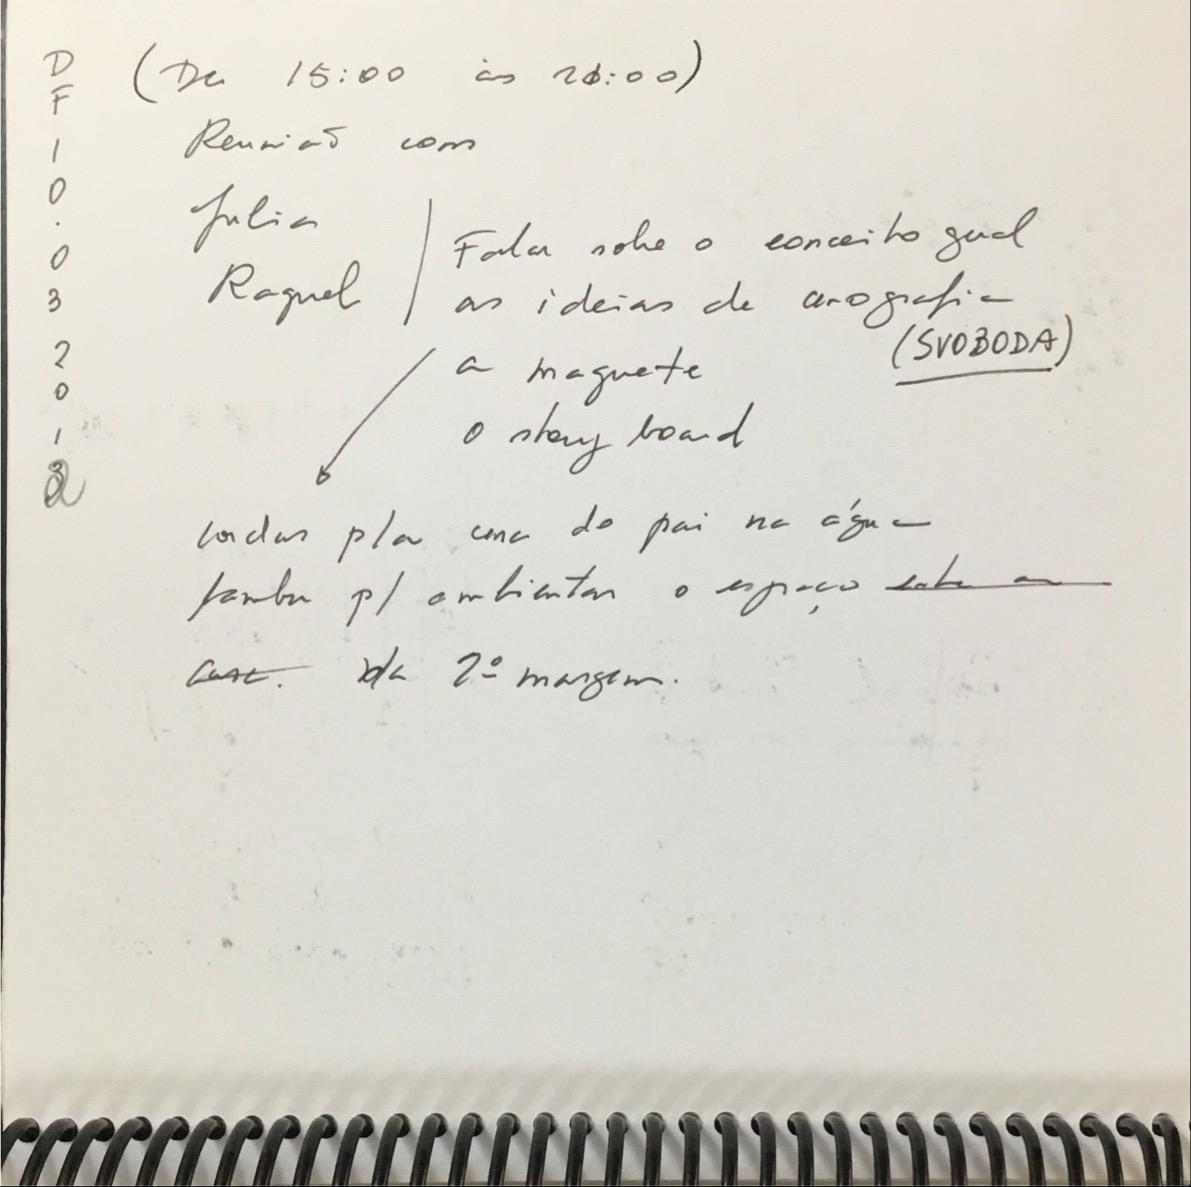 DF 10.03 2012
(De 15:00 às 20:00)
Reunião com
Julia
Raquel
Falar sobre o conceito geral
as ideias de cenografia
(SVOBODA)
a maquete
o story board
cordas p/a cena do pai na água
p/ ambientar o espaço
da 2º margem.